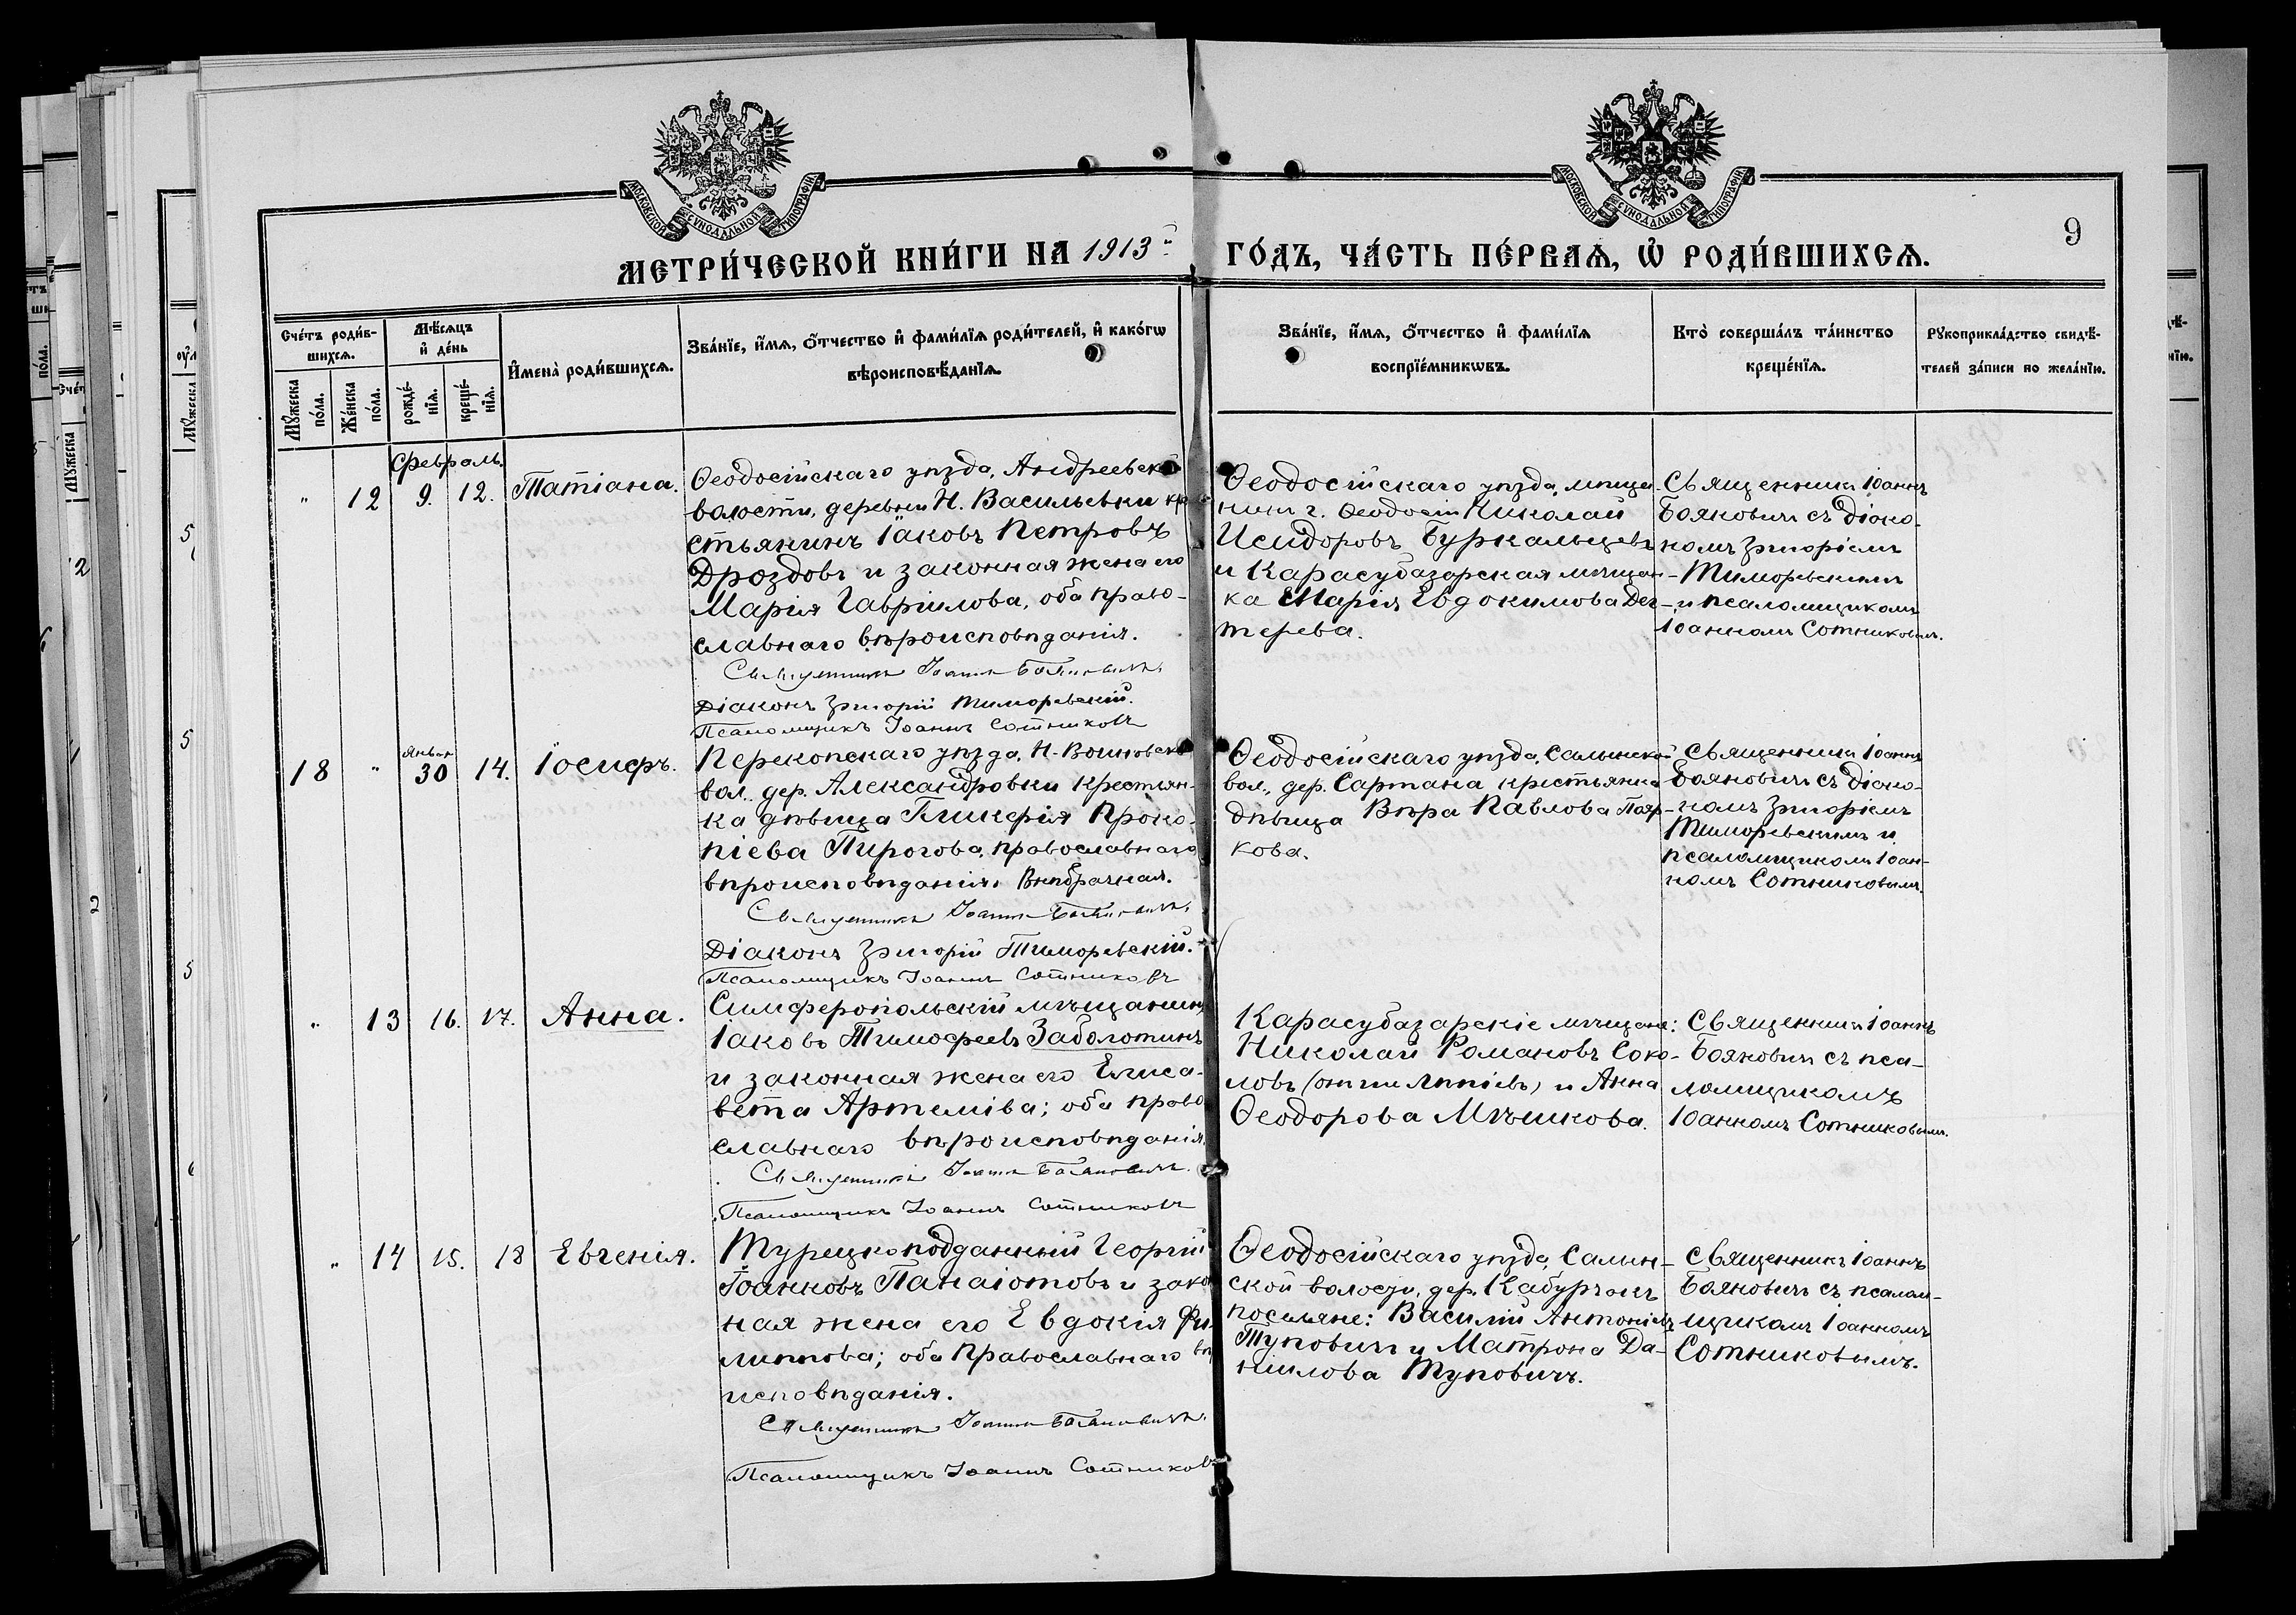 МОСКОВСКОЙ СѴНОДАЛЬНОЙ ТИПОГРАФІИ
МОСКОВСКОЙ СѴНОДАЛЬНОЙ ТИПОГРАФІИ
9
МЕТРИ́ЧЕСКОЙ КНИ́ГИ НА 1913й ГО́ДЪ, ЧА́СТЬ ПЕ́РВАѦ, Ѡ҆ РОДИ́ВШИХСѦ.
Сче́тъ роди́в-
шихсѧ.
Мѣ́сѧцъ
и҆ де́нь
Мꙋ́жеска
по́ла.
Же́нска
по́ла.
рожде́-
нїѧ.
креще́-
нїѧ.
И҆мена̀ роди́вшихсѧ.
Зва́нїе, и҆́мѧ, ѻ҆́тчество и҆ фами́лїѧ роди́телей, и҆ како́гѡ
вѣроисповѣ́данїѧ.
Зва́нїе, и҆́мѧ, ѻ҆́тчество и҆ фами́лїѧ
воспрїе́мникѡвъ.
Кто̀ соверша́лъ та́инство
креще́нїѧ.
Рꙋкоприкла́дство свидѣ́-
телей за́писи по жела́нїю.
Февраль.
" 12 9. 12. Татіана.
Ѳеодосійскаго уѣзда, Андреевск
волости, деревни Н. Васильевки кре
стьянинъ Іаковъ Петровъ
Дроздовъ и законная жена его
Марія Гавріилова, оба право-
славнаго вѣроисповѣданія.
Священникъ Іоаннъ Баянович
Діаконъ Григорій Тиморевскій.
Псаломщикъ Іоаннъ Сотниковъ
Ѳеодосійскаго уѣзда, мѣща-
нинъ г. Ѳеодосіи Николай
Исидоровъ Буркальцевъ
и Карасубазарская мѣщан-
ка Марія Евдокимова Дег-
терева.
Священникъ Іоаннъ
Боянович съ діако-
номъ Григоріемъ
Тиморевскимъ
и псаломщикомъ
Іоанномъ Сотниковымъ.
18 " Январ 30 14. Іосифъ.
Перекопскаго уѣзда, Н-Воиновско
вол. дер. Александровки крестьян-
ка дѣвица Гликерія Проко-
піева Пирогова, православнаго
вѣроисповѣданія. Внѣбрачная.
Священникъ Іоаннъ Баянович
Діаконъ Григорій Тиморевскій.
Псаломщикъ Іоаннъ Сотниковъ
Ѳеодосійскаго уѣзда, Салынской
вол., дер. Сартана крестьянка
дѣвица Вѣра Павлова
кова.
Священникъ Іоаннъ
Боянович съ діако-
номъ Григоріемъ
Тиморевскимъ и
псаломщикомъ Іоан-
номъ Сотниковымъ.
" 13 16. 17. Анна.
Симферопольскій мѣщанинъ
Іаковъ Тимофеевъ Заболотинъ
и законная жена его Елиса-
вета Артеміва; оба право
славнаго вѣроисповѣданія.
Священникъ Іоаннъ Баянович
Псаломщикъ Іоаннъ Сотниковъ
Карасубазарскіе мѣщане:
Николай Романовъ Соко-
ловъ и Анна
Ѳеодорова Мѣшкова.
Священникъ Іоаннъ
Боянович съ пса-
ломщикомъ
Іоанномъ Сотниковымъ.
" 14 15. 18 Евгенія.
Турецкоподданный Георгій
Іоанновъ Панаіотовъ и зако
ная жена его Евдокія Фи-
липпова; оба православнаго вѣ
исповѣданія.
Священникъ Іоаннъ Баянович
Псаломщикъ Іоаннъ Сотниковъ
Ѳеодосійскаго уѣзда, Салын-
ской волости, дер. Кабурчакъ
поселяне: Василій Антоніевъ
Туповичъ и Матрона Да-
ниилова Туповичъ.
Священникъ Іоаннъ
Бояновичъ съ псалом-
щикомъ Іоанномъ
Сотниковымъ.